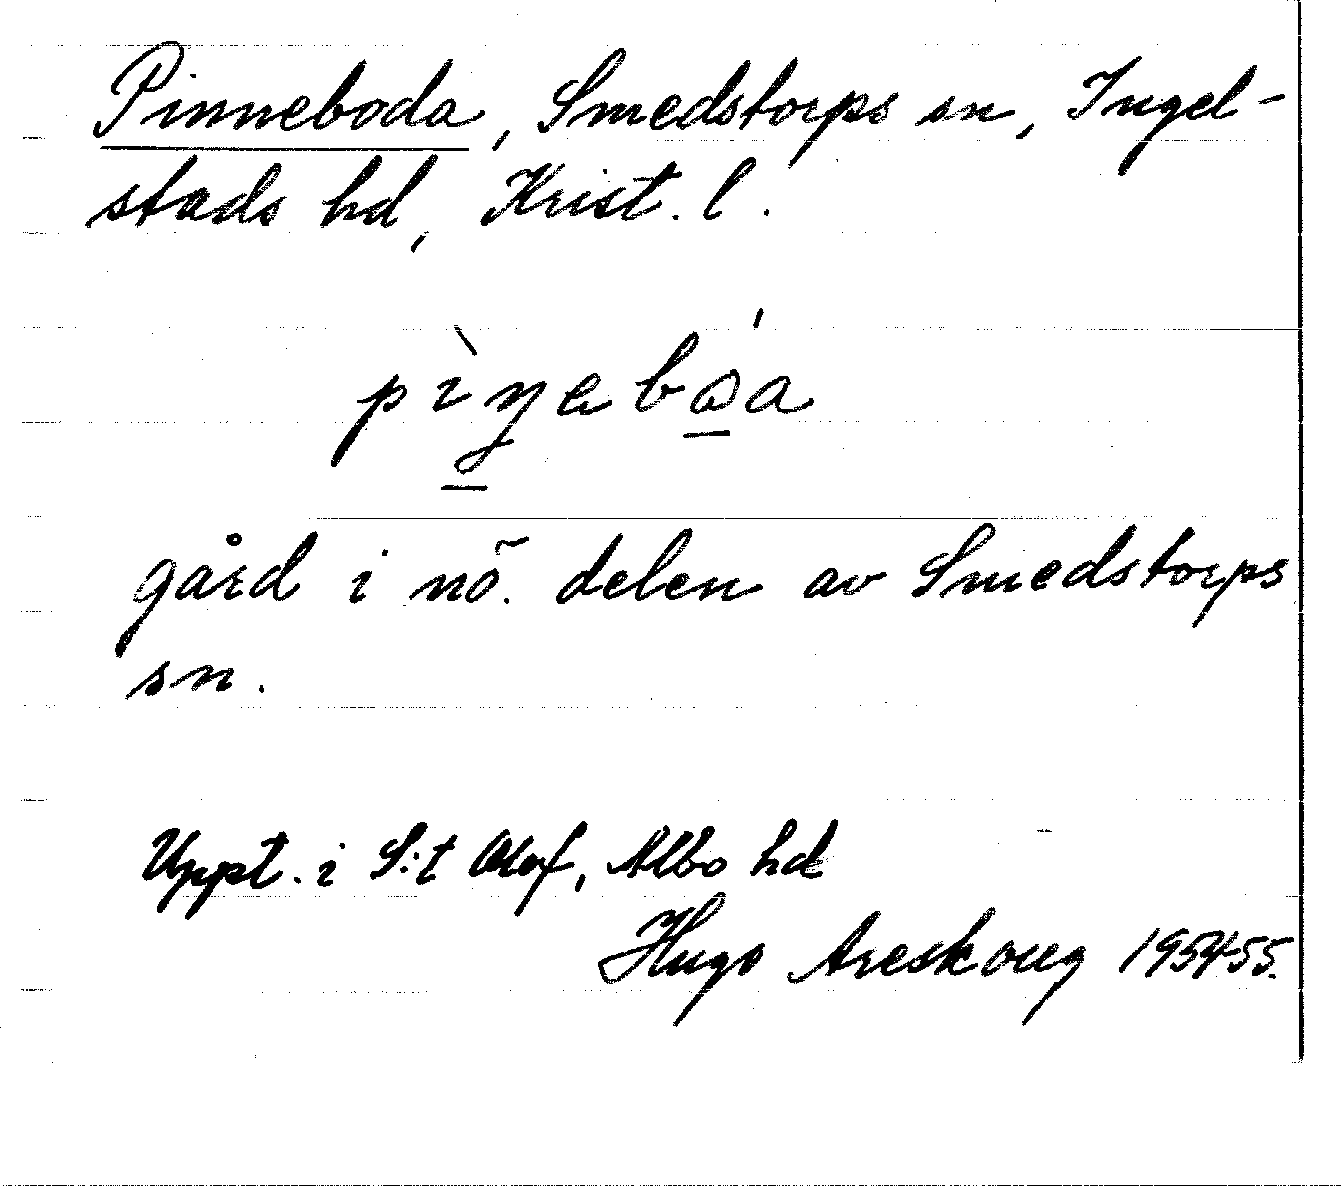 Pinneboda, Smedstorps sn, Ingel-
stads hd, Krist. l.
gård i nö. delen av Smedstorps
sn.
Uppt. i S:t Olof, Albo hd
Hugo Areskoug 1954-55.